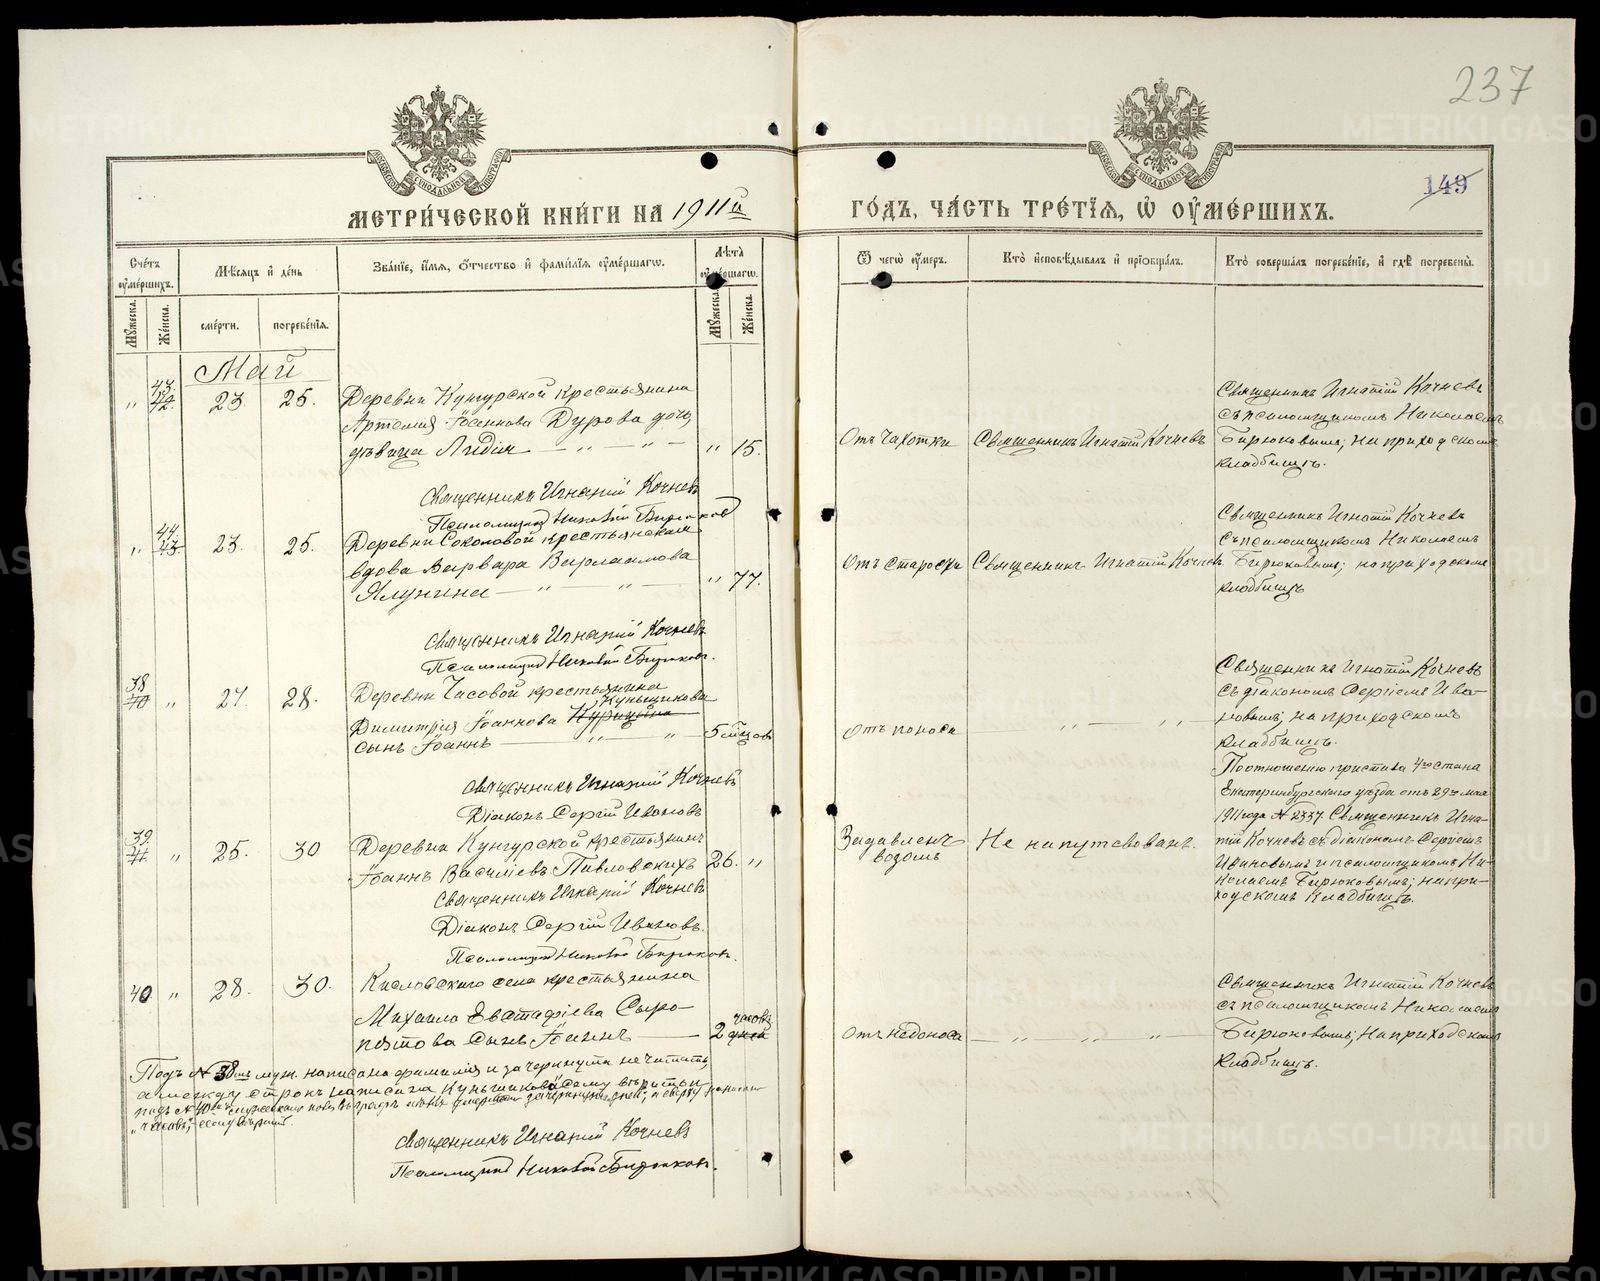 237
149
МЕТРИ́ЧЕСКОЙ КНИ́ГИ НА 1911й
ГО́ДЪ, ЧА́СТЬ ТРЕ́ТІЯ, Ѽ ОУМЕ́РШИХЪ.
Сче́тъ оуме́ршихъ.
Му́жеска.
Же́нска.
Мѣ́сяцъ и де́нь
сме́рти.
погребе́нїя.
Зва́нїе, и́мя, о́тчество и фами́лїя оуме́ршагѡ.
Лѣ́та оуме́ршагѡ.
Му́жеска.
Же́нска.
Ѿ чегѡ̀ оу́меръ.
Кто̀ исповѣ́дывалъ и прїобща́лъ.
Кто̀ соверша́лъ погребе́нїе, и гдѣ̀ погребены̀.
Май
" 43. 42. 23. 25.
Деревни Кунгурской крестьянина
Артемия Іоаннова Дурова дочь,
дѣвица Лидія — " — " —
" 15.
Отъ чахотки
Священникъ Игнатій Кочневъ
Священникъ Игнатій Кочневъ
съ псаломщикомъ Николаемъ
Бирюковымъ; на приходскомъ
кладбищѣ.
Священникъ Игнатій Кочневъ
Псаломщикъ Николай Бирюковъ
" 44. 43. 23. 25.
Деревни Соколовой крестьянская
вдова Варвара Варлаамова
Ялунина — " " —
" 77.
Отъ старости
Священникъ Игнатій Кочневъ
Священникъ Игнатій Кочневъ
съ псаломщикомъ Николаемъ
Бирюковымъ; на приходскомъ
кладбищѣ
Священникъ Игнатій Кочневъ
Псаломщикъ Николай Бирюковъ.
38 40 " 27. 28.
Деревни Часовой крестьянина
Куньщикова
Димитрія Іоаннова Курицына
сынъ Іоаннъ — " — " —
5 мѣцовъ
Отъ поноса
— " — " "
Священникъ Игнатій Кочневъ
съ діакономъ Сергіемъ Ива-
новымъ; на приходскомъ
кладбищѣ.
Священникъ Игнатій Кочневъ
Діаконъ Сергій Ивановъ
39. 41. " 25. 30
Деревни Кунгурской крестьянинъ
Іоаннъ Василіевъ Павловскихъ
26. "
Задавленъ
возомъ
Не напутствованъ.
По отношенію пристава 4го стана
Екатеринбургского уѣзда отъ 29го мая
1911 года № 2337 Священникъ Игна-
тій Кочневъ съ діакономъ Сергіемъ
Ивановымъ и псаломщикомъ Ни-
колаемъ Бирюковымъ; на при-
ходскомъ кладбищѣ.
Священникъ Игнатій Кочневъ
Діаконъ Сергій Ивановъ.
Псаломщикъ Николай Бирюковъ.
40 " 28. 30.
Кисловского села крестьянина
Михаила Евстафіева Сыро-
пятова сынъ Іоаннъ —
часовъ
2 дней
Отъ недоноса
— " — " — " —
Священникъ Игнатій Кочневъ
съ псаломщикомъ Николаемъ
Бирюковымъ; на приходскомъ
кладбищѣ.
Подъ № 38мъ муж. написана фамилія и зачеркнута не читать,
а между строкъ написана Куньщикова сему вѣрить и
подъ № 40мъ зачеркнуто дней, а сверху написано
„часовъ", сему вѣрить.
Священникъ Игнатій Кочневъ
Псаломщикъ Николай Бирюковъ.
METRIKI.GASO-URAL.RU